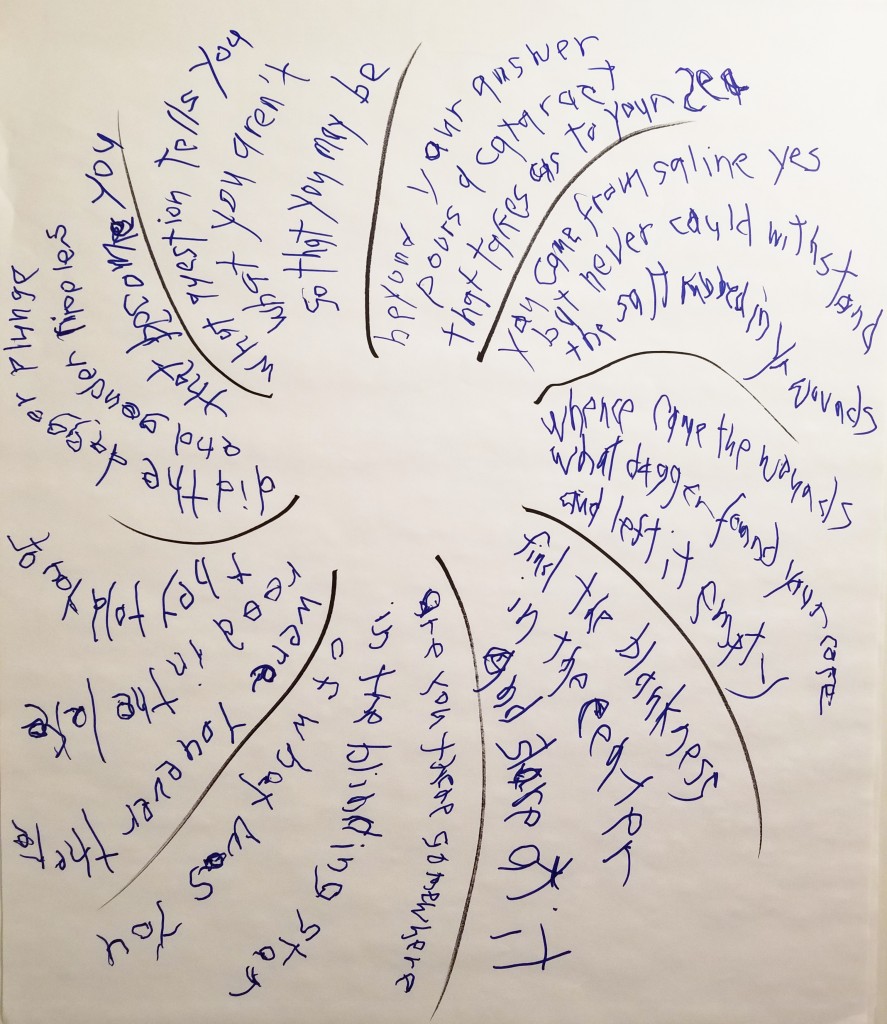 beyond your answer
pours a cataract
that takes us to your sea
you came from saline yes
but never could withstand
the salt rubbed in yr wounds
whence came the wounds
what dagger found your core
and left it empty
find the blankness
in the center
and stare at it
are you there somewhere
in the blinding star
of what was you
were you ever the
read in the
they told you of
did the dagger plunge
and ripples
that you
what question tells you
what you aren't
so that you may be